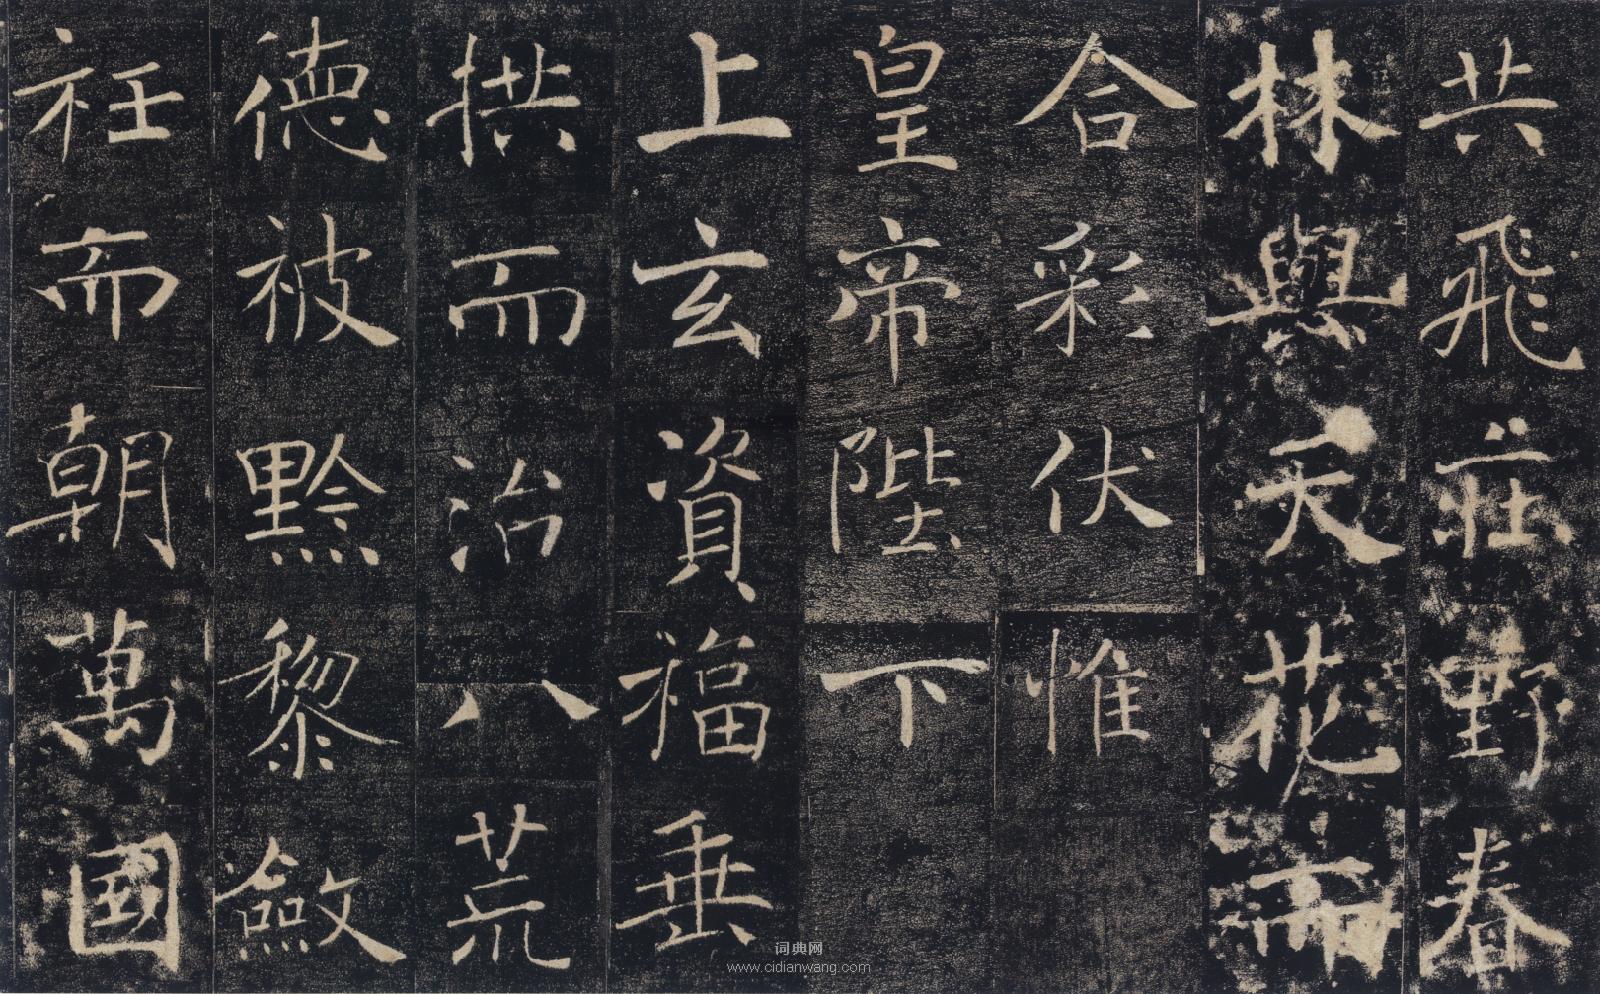 共飛莊野春
林與天花而
合彩伏惟
皇帝陛下
上玄資福垂
拱而治八荒
德被黔黎斂
衽而朝萬國
词典网
www.cidianwang.com